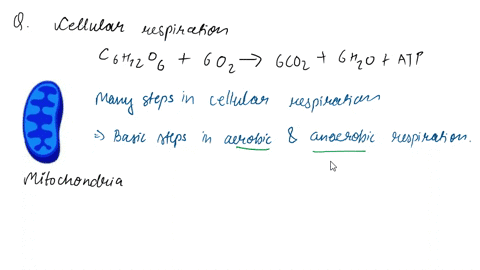 Q. Cellular respiration
C6H12O6 + 6O2 → 6CO2 + 6H2O + ATP
Many steps in cellular respiration
⇒ Basic steps in aerobic & anaerobic respiration.
Mitochondria